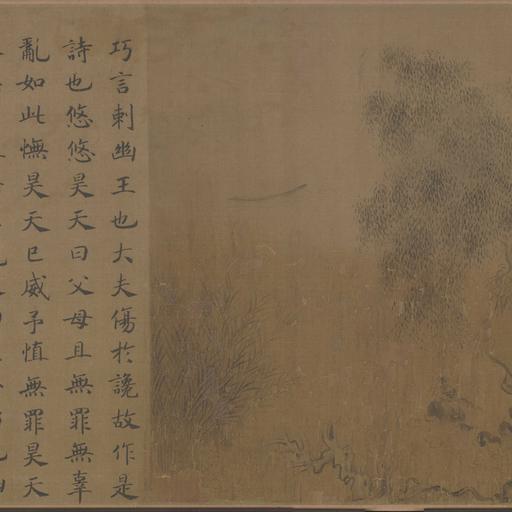 巧言刺幽王也大夫傷於讒故作是
詩也悠悠昊天曰父母且無罪無辜
亂如此憮昊天已威予慎無罪昊天